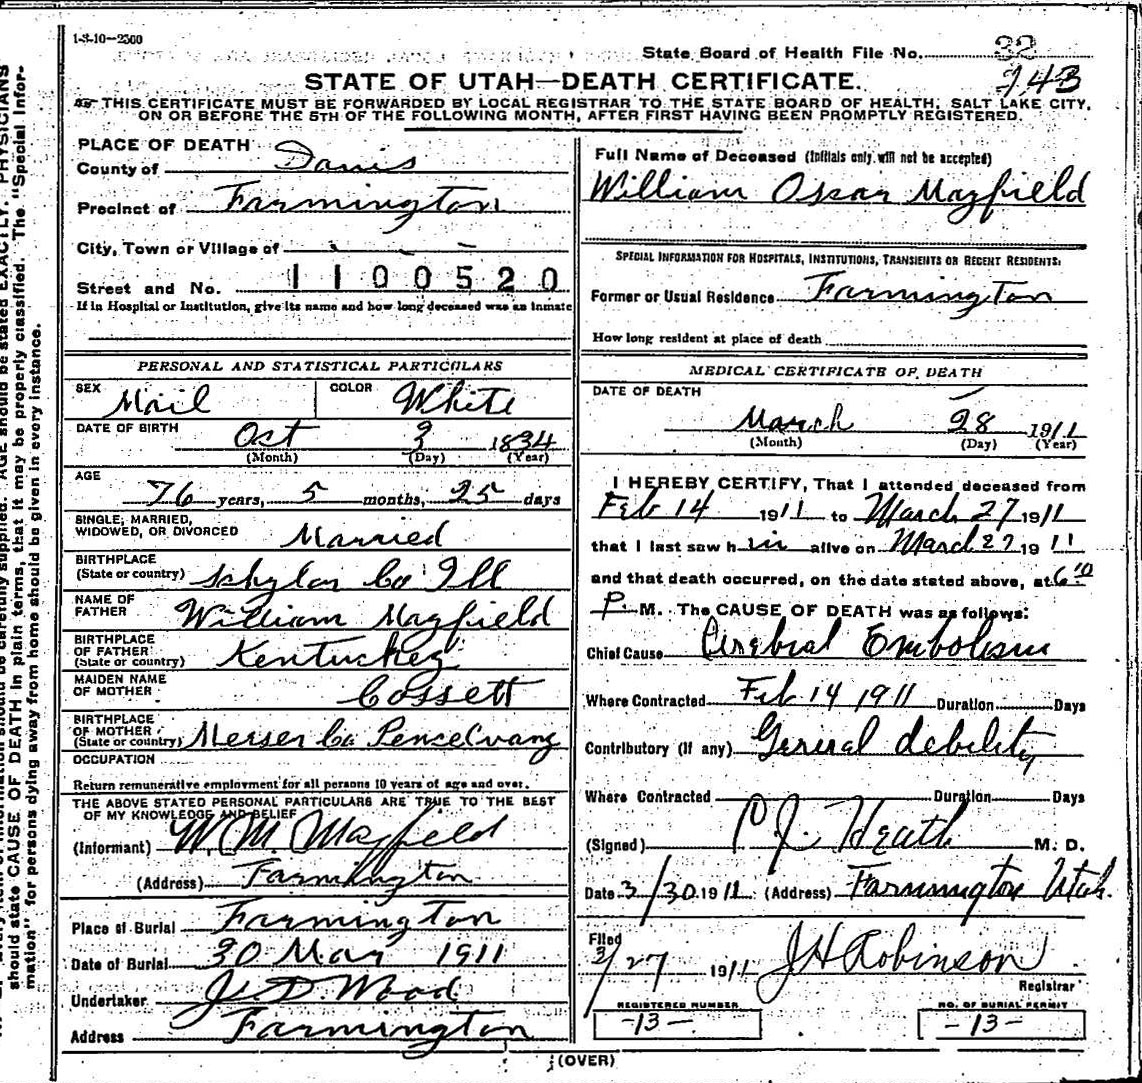 1-3-10—2500
State Board of Health File No. 32
243
STATE OF UTAH—DEATH CERTIFICATE.
THIS CERTIFICATE MUST BE FORWARDED BY LOCAL REGISTRAR TO THE STATE BOARD OF HEALTH, SALT LAKE CITY,
ON OR BEFORE THE 5TH OF THE FOLLOWING MONTH, AFTER FIRST HAVING BEEN PROMPTLY REGISTERED.
PLACE OF DEATH
County of Davis
Precinct of Farmington
City, Town or Village of
Street and No. 1100520
If in Hospital or Institution, give its name and how long deceased was an inmate
PERSONAL AND STATISTICAL PARTICULARS
SEX Mail COLOR White
DATE OF BIRTH Oct 3 1834
(Month) (Day) (Year)
AGE
76 years, 5 months, 25 days
SINGLE, MARRIED,
WIDOWED, OR DIVORCED Married
BIRTHPLACE
(State or country) Schylar Co Ill
NAME OF
FATHER William Mayfield
BIRTHPLACE
OF FATHER
(State or country) Kentuckey
MAIDEN NAME
OF MOTHER Cossett
BIRTHPLACE
OF MOTHER
(State or country) Merser Co
OCCUPATION
Return remunerative employment for all persons 10 years of age and over.
THE ABOVE STATED PERSONAL PARTICULARS ARE TRUE TO THE BEST
OF MY KNOWLEDGE AND BELIEF
(Informant) W. M. Mayfield
(Address) Farmington
Place of Burial Farmington
Date of Burial 30 Mar 1911
Undertaker Wood
Address Farmington
Full Name of Deceased (Initials only will not be accepted)
William Oscar Mayfield
SPECIAL INFORMATION FOR HOSPITALS, INSTITUTIONS, TRANSIENTS OR RECENT RESIDENTS:
Former or Usual Residence Farmington
How long resident at place of death
MEDICAL CERTIFICATE OF DEATH
DATE OF DEATH
March 28 1911
(Month) (Day) (Year)
I HEREBY CERTIFY, That I attended deceased from
Feb 14 1911 to March 27 1911
that I last saw him alive on March 27 1911
and that death occurred, on the date stated above, at 6 10
P. M. The CAUSE OF DEATH was as follows:
Chief Cause Cerebral Embolism
Where Contracted Feb 14 1911 Duration Days
Contributory (if any) General debility
Where Contracted Duration Days
(Signed) Heath M. D.
Date 3/30 1911 (Address) Farmington Utah.
Filed
3/27 1911 J H Robinson
Registrar
REGISTERED NUMBER
-13-
NO. OF BURIAL PERMIT
-13-
(OVER)
information should be carefully supplied. AGE should be stated EXACTLY. PHYSICIANS
should state CAUSE OF DEATH in plain terms, that it may be properly classified. The "Special Infor-
mation" for persons dying away from home should be given in every instance.